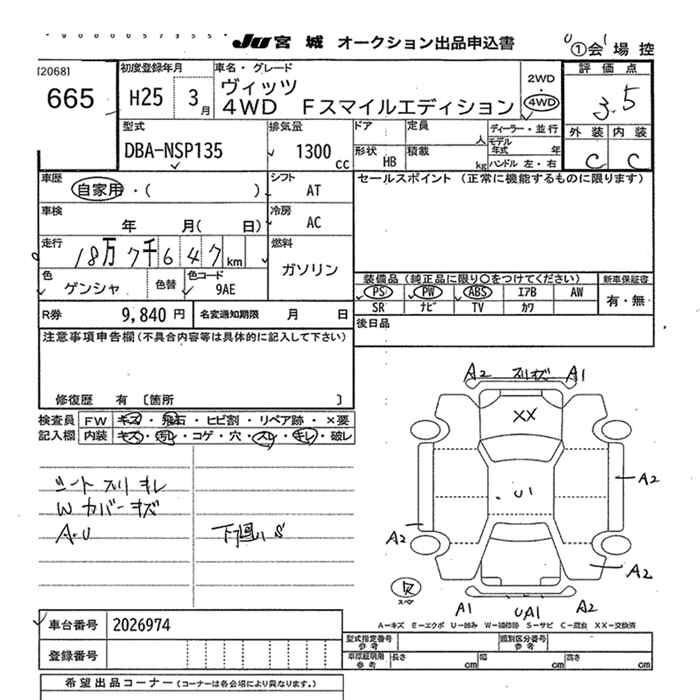 JU 宮城 オークション出品申込書 ①会場控
[2068] 初度登録年月 車名・グレード 2WD 評価点
665 H25 3月 ヴィッツ 4WD
4WD Fスマイルエディション 3.5
型式 排気量 ドア 定員 人 ディーラー・並行 外装 内装
DBA-NSP135 1300cc 形状 HB 積載 kg モデル年式 年 C C
ハンドル 左・右
車歴 自家用・( ) シフト AT セールスポイント (正常に機能するものに限ります)
車検 年 月( 日) 冷房 AC
走行 18万7千647km 燃料 ガソリン
色 ゲンシャ 色替 色コード 9AE
装備品 (純正品に限り○をつけてください) 新車保証書
PS PW ABS エアB AW 有・無
SR ナビ TV カワ
R券 9,840円 名変通知期限 月 日
後日品
注意事項申告欄(不具合内容等は具体的に記入して下さい)
修復歴 有 〔箇所 〕
検査員 FW キズ・飛石・ヒビ割・リペア跡・×要
記入欄 内装 キズ・汚レ・コゲ・穴・スレ・キレ・破レ
シート スリ キレ
W カバー キズ
A・U 下廻り S
A2 スリキズ A1
XX
U1
A2
A2
A2
スペア
A1 UA1 A2
A-キズ E-エクボ U-凹み W-補修跡 S-サビ C-腐食 XX-交換済
車台番号 2026974
登録番号
型式指定番号 参考 類別区分番号 参考
車庫証明用 参考 長さ cm 幅 cm 高さ cm
希望出品コーナー (コーナーは各会場により異なります。)